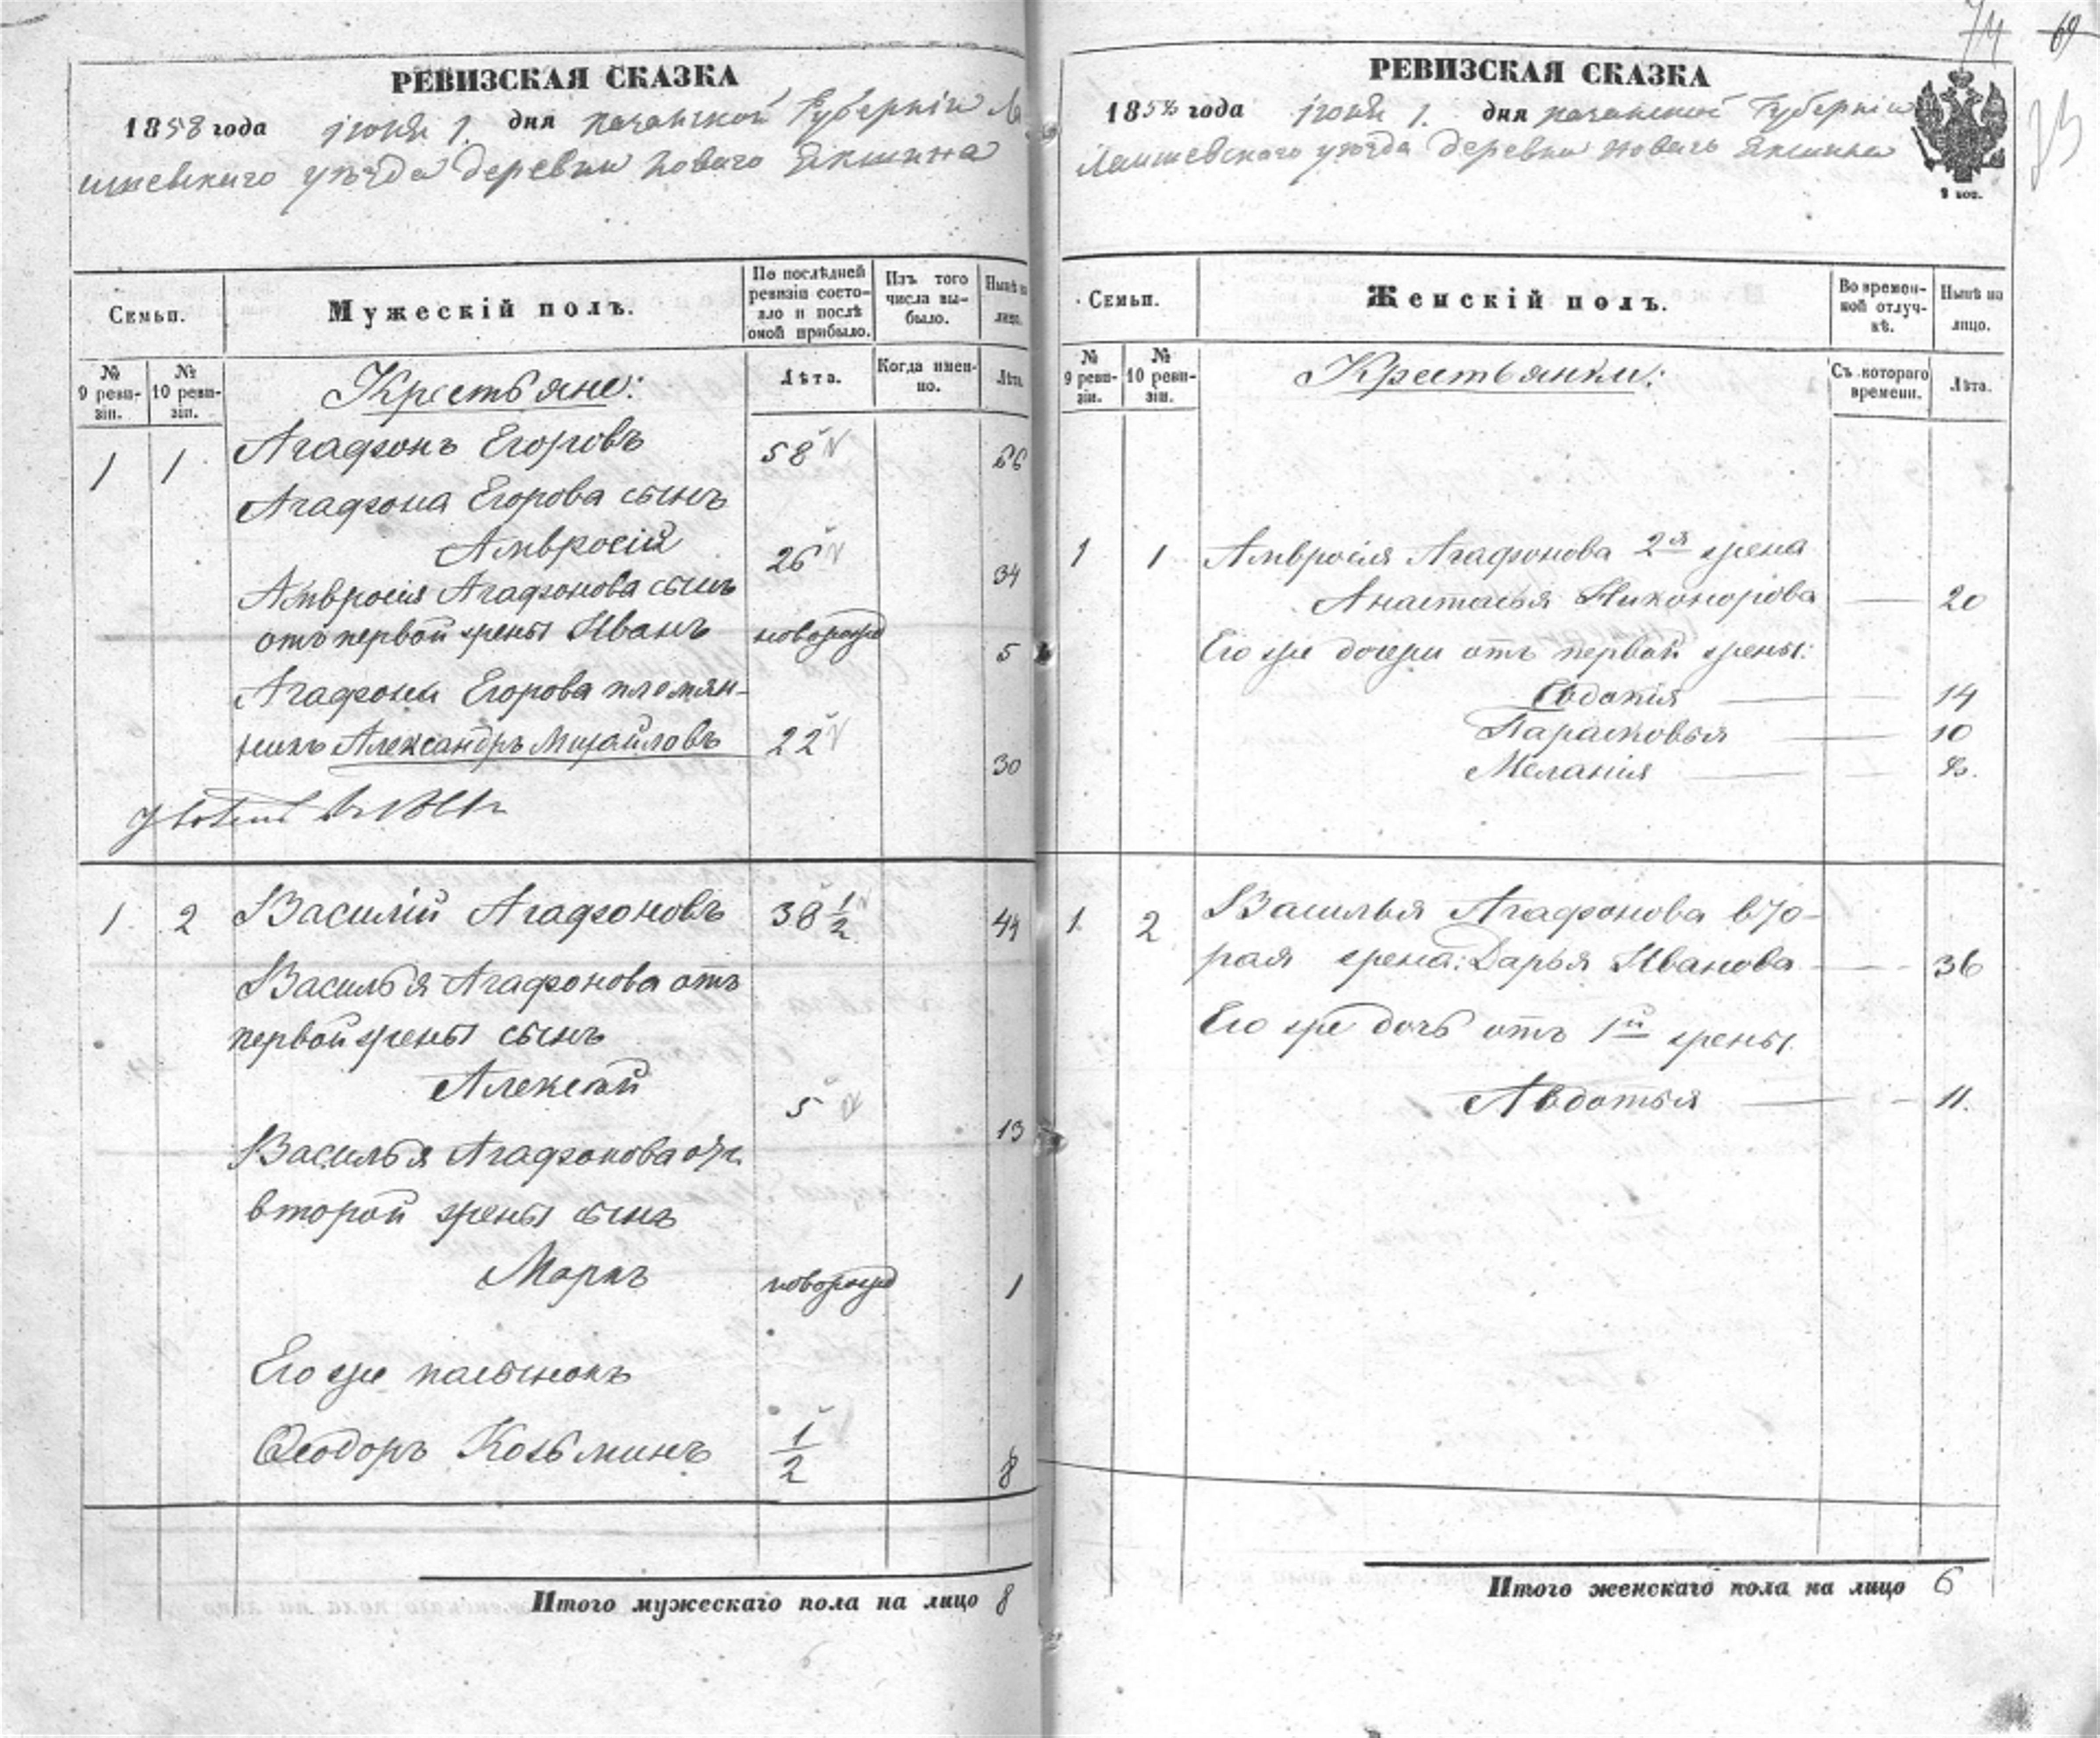 РЕВИЗСКАЯ СКАЗКА
1858 года іюня 1. дня казанской Губерніи Ла
ишевскаго уѣзда деревни новаго Якшина
Семьи.
Мужескій полъ.
По послѣдней
ревизіи состо-
яло и послѣ
оной прибыло.
Изъ того
числа вы-
было.
Нынѣ на
лицо.
№
9 реви-
зіи.
№
10 реви-
зіи.
Крестьяне:
Лѣта.
Когда имен-
но.
Лѣта.
1 1 Агафонъ Егоровъ 58 66
Агафона Егорова сынъ
Амвросій 26 34
Амвросія Агафонова сынъ
отъ первой жены Иванъ новорожд 5
Агафона Егорова племян-
никъ Александръ Михайловъ 22 30
1 2 Василій Агафоновъ 38 1/2 44
Василья Агафонова отъ
первой жены сынъ
Алексѣй 5 13
Василья Агафонова отъ
второй жены сынъ
Маркъ новорожд 1
Его же пасынокъ
Ѳеодоръ Козьминъ 1/2 8
Итого мужескаго пола на лицо 8
74 69
73
РЕВИЗСКАЯ СКАЗКА
1858 года іюня 1. дня казанской Губерніи
Лаишевскаго уѣзда деревни новаго Якшина
2 коп.
Семьи.
Женскій полъ.
Во времен-
ной отлуч-
кѣ.
Нынѣ на
лицо.
№
9 реви-
зіи.
№
10 реви-
зіи.
Крестьянки:
Съ котораго
времени.
Лѣта.
1 1 Амвросія Агафонова 2я жена
Анастасья Никонорова 20
Его же дочери отъ первой жены:
Евдокія 14
Парасковья 10
Меланія 8.
1. 2 Василья Агафонова вто-
рая жена: Дарья Иванова 36
Его же дочь отъ 1й жены
Авдотья 11.
Итого женскаго пола на лицо 6